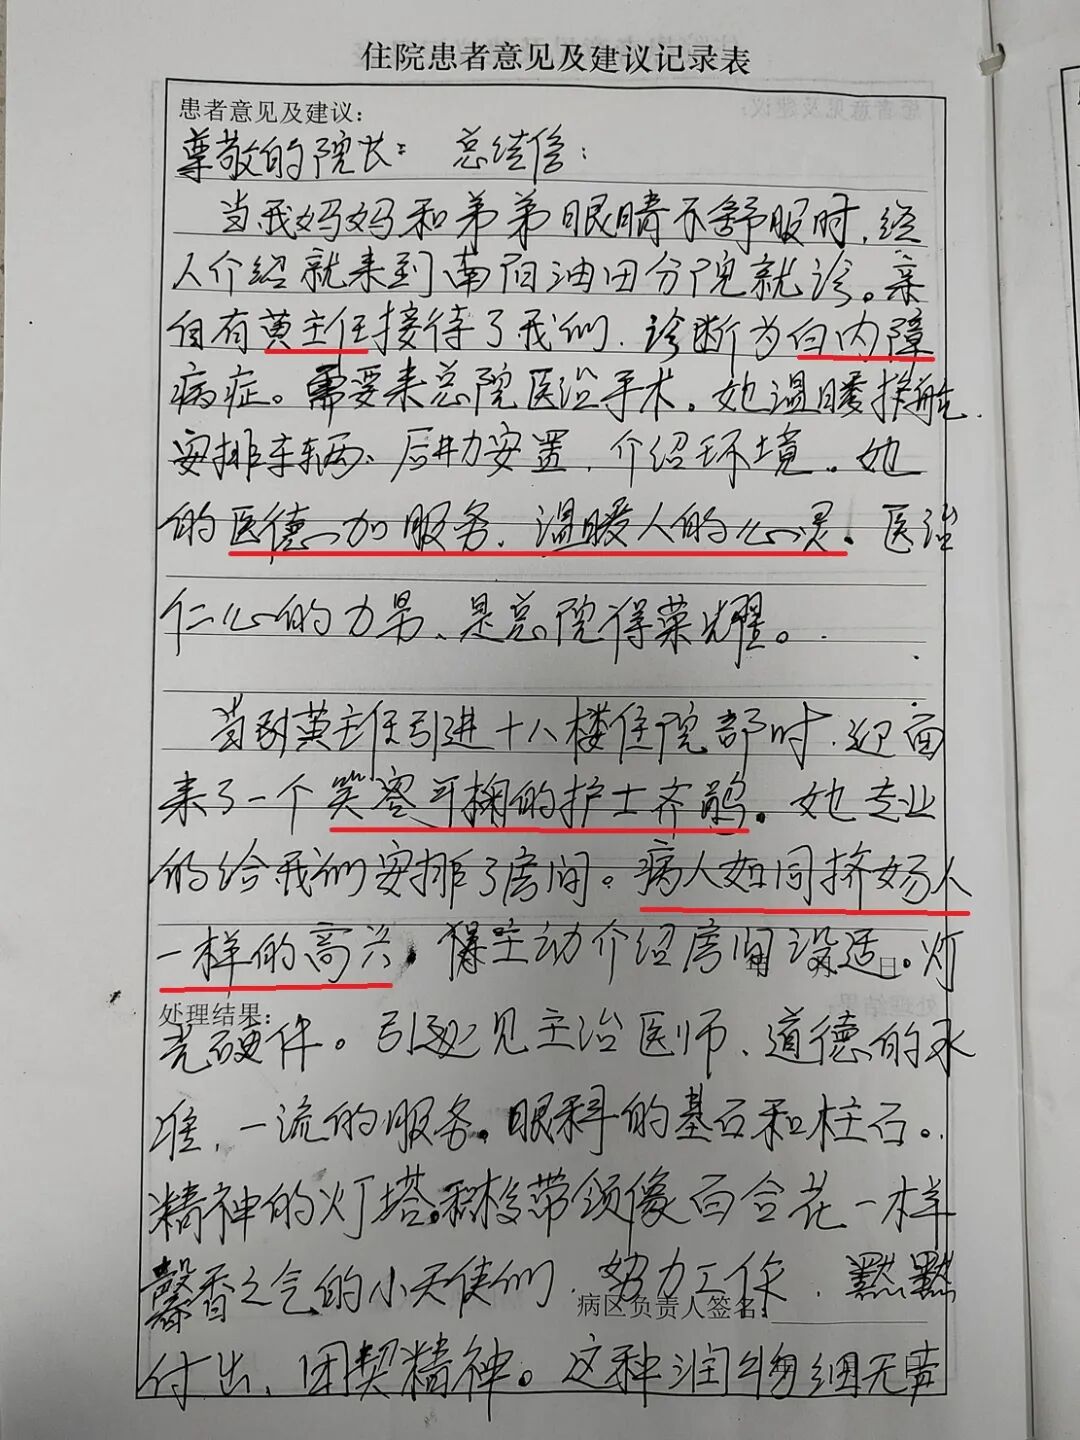 住院患者意见及建议记录表
患者意见及建议:
尊敬的院长: 总结信:
当我妈妈和弟弟眼睛不舒服时,经
人介绍就来到南阳油田分院就诊。亲
自有黄主任接待了我们,诊断为白内障
病症。需要来总院医治手术。她温暖
安排车辆、后勤安置,介绍环境。她
的医德加服务,温暖人的心灵。医治
仁心的力量、是总院得荣耀。
当到黄主任引进十八楼住院部时,迎面
来了一个笑容可掬的护士齐鹃。她专业
的给我们安排了房间。病人如同挤奶人
一样的高兴,得主动介绍房间设适。灯
处理结果:
光硬件。引处见主治医师、道德的水
准,一流的服务。眼科的基石和柱石。
精神的灯塔。积极带领像百合花一样
馨香之气的小天使们,努力工作,默默
病区负责人签名:
付出、团契精神。这种润物细无声